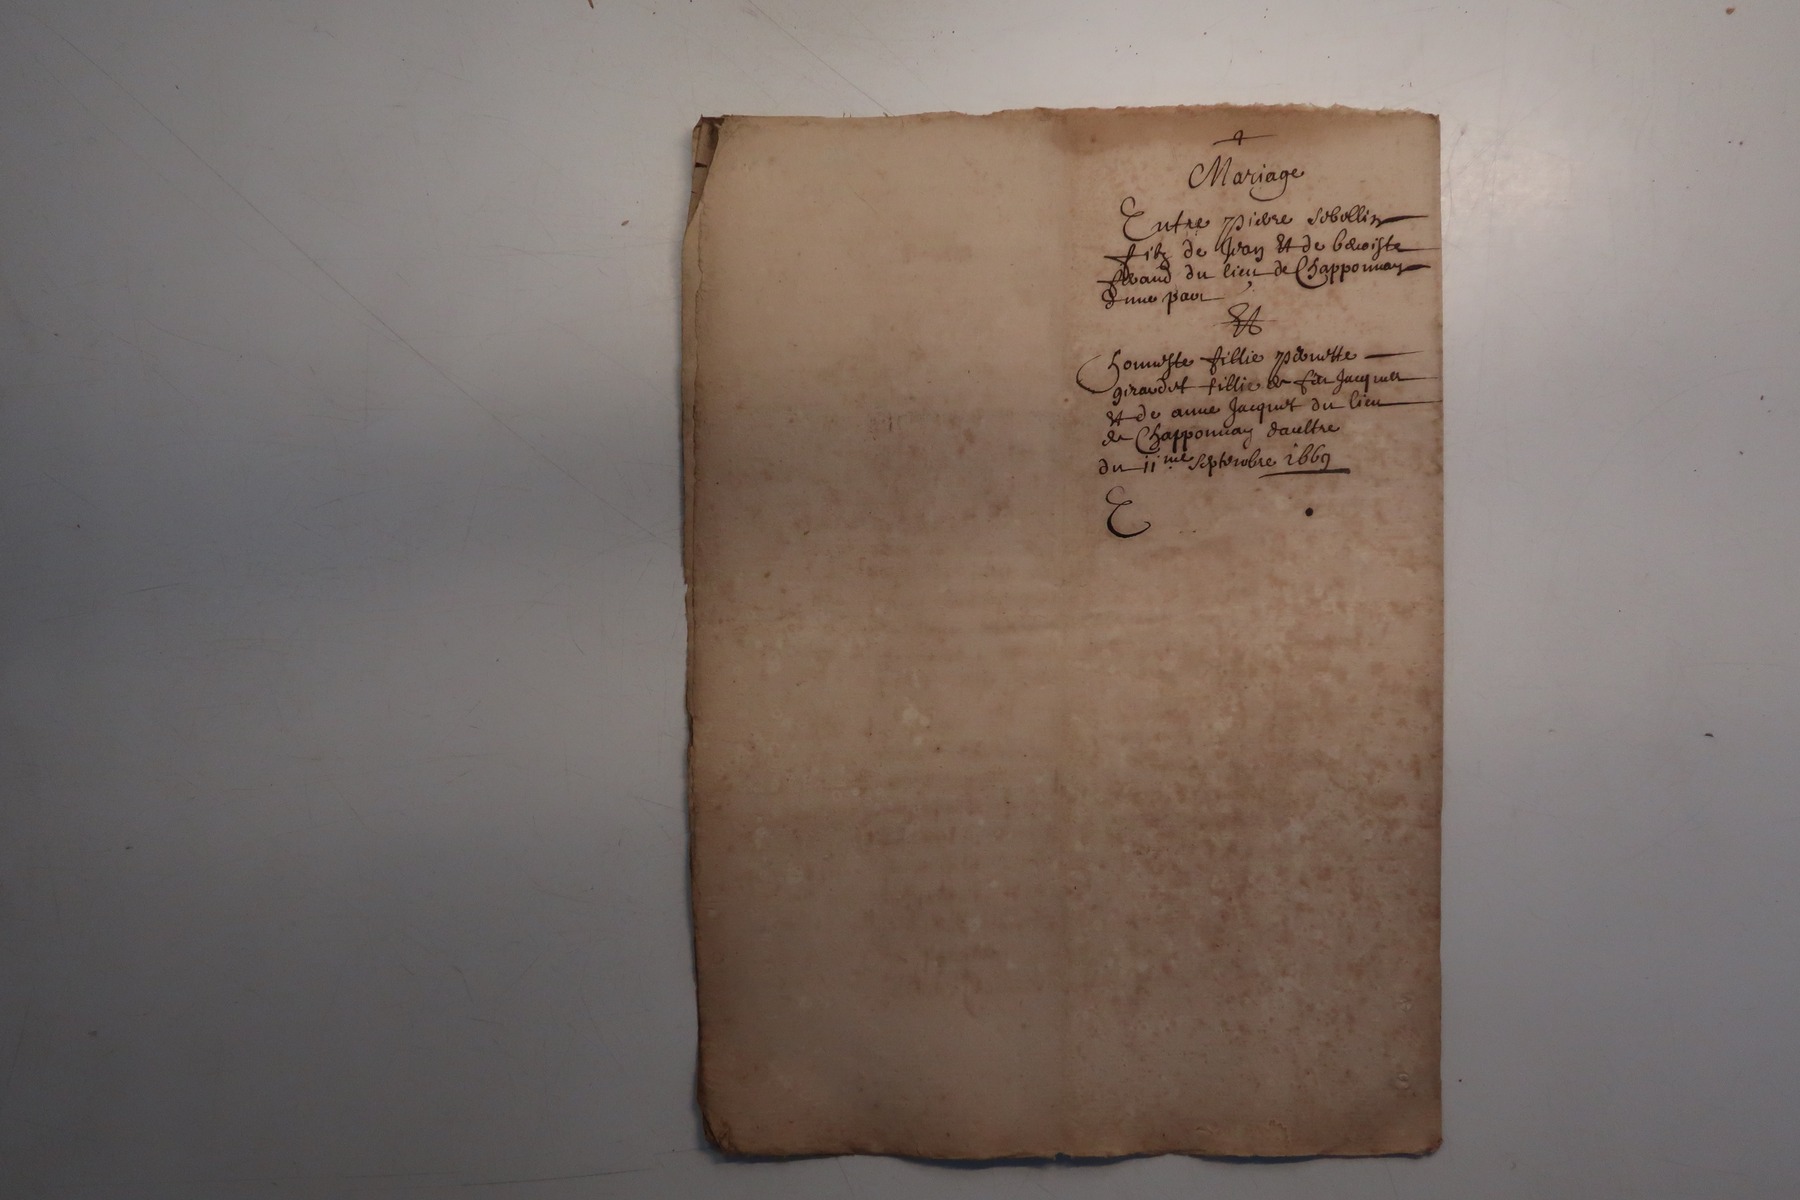 Mariage
Entre pierre Sebellin
filz de Jean Et de benoiste
du lieu de Chapponnay
d'une part
Et
honneste fillie pernette
girardet fillie de feu Jacques
Et de anne Jacquet du lieu
de Chapponnay daultre
du 11me Septembre 1669